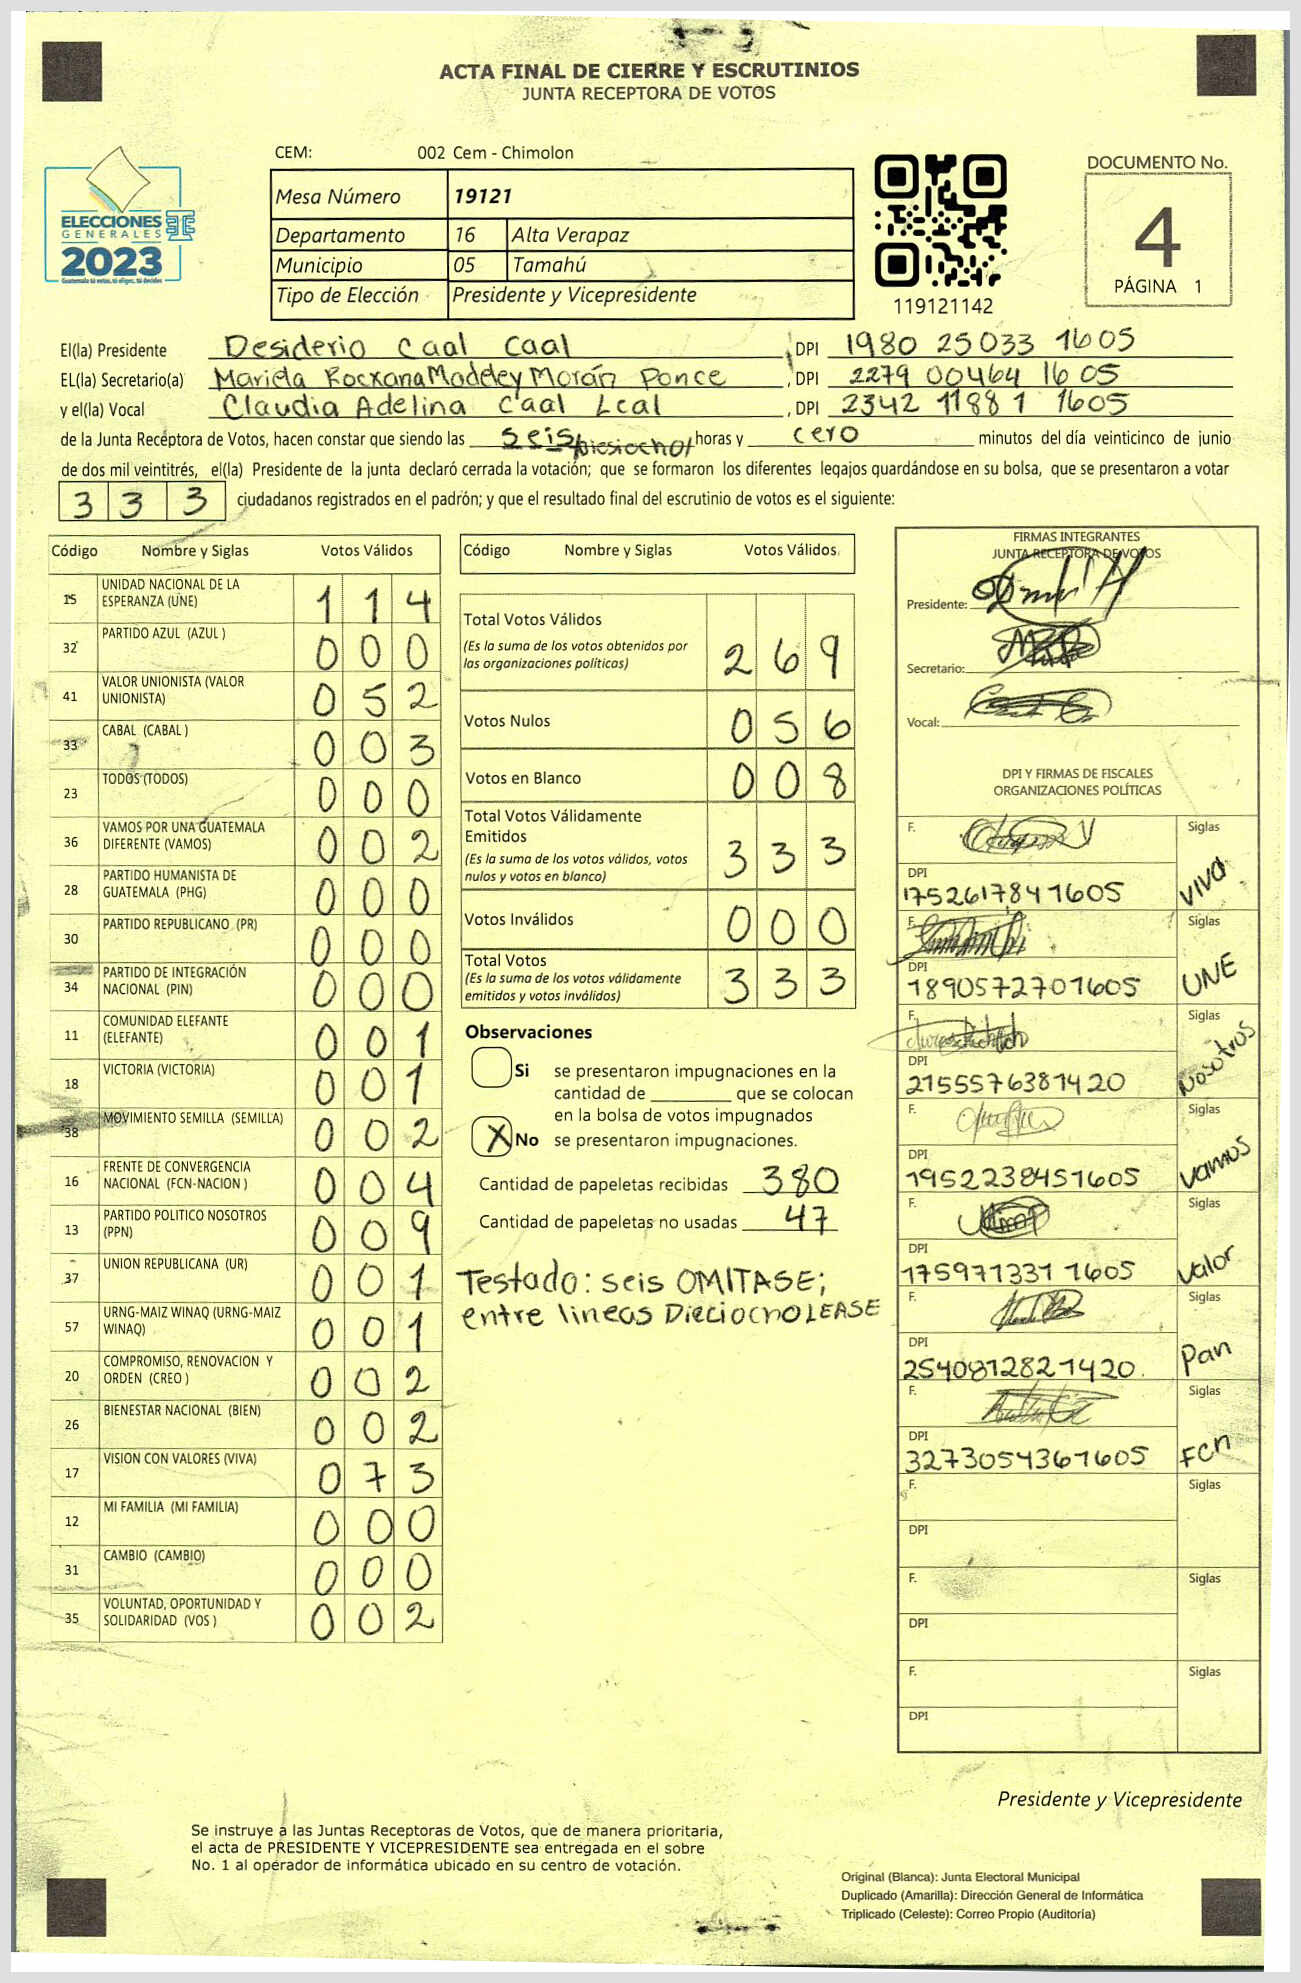 ACTA FINAL DE CIERRE Y ESCRUTINIOS
JUNTA RECEPTORA DE VOTOS
CEM: 002 Cem - Chimolon
ELECCIONES
GENERALES
2023
Guatemala tú votas, tú eliges, tú decides
Mesa Número 19121
Departamento 16 Alta Verapaz
Municipio 05 Tamahú
Tipo de Elección Presidente y Vicepresidente
119121142
DOCUMENTO No.
4
PÁGINA 1
El(la) Presidente Desiderio Caal Caal , DPI 1980 25033 1605
EL(la) Secretario(a) Mariela Rocxana Madeley Morán Ponce , DPI 2279 00464 1605
y el(la) Vocal Claudia Adelina Caal Lcal , DPI 2342 11881 1605
de la Junta Receptora de Votos, hacen constar que siendo las seis Diesiocho horas y cero minutos del día veinticinco de junio
de dos mil veintitrés, el(la) Presidente de la junta declaró cerrada la votación; que se formaron los diferentes legajos guardándose en su bolsa, que se presentaron a votar
333 ciudadanos registrados en el padrón; y que el resultado final del escrutinio de votos es el siguiente:
Código Nombre y Siglas Votos Válidos
15 UNIDAD NACIONAL DE LA ESPERANZA (UNE) 114
32 PARTIDO AZUL (AZUL ) 000
41 VALOR UNIONISTA (VALOR UNIONISTA) 052
33 CABAL (CABAL ) 003
23 TODOS (TODOS) 000
36 VAMOS POR UNA GUATEMALA DIFERENTE (VAMOS) 002
28 PARTIDO HUMANISTA DE GUATEMALA (PHG) 000
30 PARTIDO REPUBLICANO (PR) 000
34 PARTIDO DE INTEGRACIÓN NACIONAL (PIN) 000
11 COMUNIDAD ELEFANTE (ELEFANTE) 001
18 VICTORIA (VICTORIA) 001
38 MOVIMIENTO SEMILLA (SEMILLA) 002
16 FRENTE DE CONVERGENCIA NACIONAL (FCN-NACION ) 004
13 PARTIDO POLITICO NOSOTROS (PPN) 009
37 UNION REPUBLICANA (UR) 001
57 URNG-MAIZ WINAQ (URNG-MAIZ WINAQ) 001
20 COMPROMISO, RENOVACION Y ORDEN (CREO ) 002
26 BIENESTAR NACIONAL (BIEN) 002
17 VISION CON VALORES (VIVA) 073
12 MI FAMILIA (MI FAMILIA) 000
31 CAMBIO (CAMBIO) 000
35 VOLUNTAD, OPORTUNIDAD Y SOLIDARIDAD (VOS ) 002
Código Nombre y Siglas Votos Válidos
Total Votos Válidos 269
(Es la suma de los votos obtenidos por
las organizaciones políticas)
Votos Nulos 056
Votos en Blanco 008
Total Votos Válidamente
Emitidos 333
(Es la suma de los votos válidos, votos
nulos y votos en blanco)
Votos Inválidos 000
Total Votos 333
(Es la suma de los votos válidamente
emitidos y votos inválidos)
Observaciones
Si se presentaron impugnaciones en la
cantidad de ________ que se colocan
en la bolsa de votos impugnados
X No se presentaron impugnaciones.
Cantidad de papeletas recibidas 380
Cantidad de papeletas no usadas 47
Testado: seis OMITASE;
entre lineas Dieciocho LEASE
FIRMAS INTEGRANTES
JUNTA RECEPTORA DE VOTOS
Presidente:
Secretario:
Vocal:
DPI Y FIRMAS DE FISCALES
ORGANIZACIONES POLÍTICAS
F. Siglas
DPI
1752617841605 VIVA
F. Siglas
DPI
1890572701605 UNE
F. Siglas
DPI
2155576381420 Nosotros
F. Siglas
DPI
1952238451605 vamos
F. Siglas
DPI
1759713311605 Valor
F. Siglas
DPI
2540812821420 Pan
F. Siglas
DPI
3273054361605 FCN
F. Siglas
DPI
F. Siglas
DPI
F. Siglas
DPI
Presidente y Vicepresidente
Se instruye a las Juntas Receptoras de Votos, que de manera prioritaria,
el acta de PRESIDENTE Y VICEPRESIDENTE sea entregada en el sobre
No. 1 al operador de informática ubicado en su centro de votación.
Original (Blanca): Junta Electoral Municipal
Duplicado (Amarilla): Dirección General de Informática
Triplicado (Celeste): Correo Propio (Auditoría)